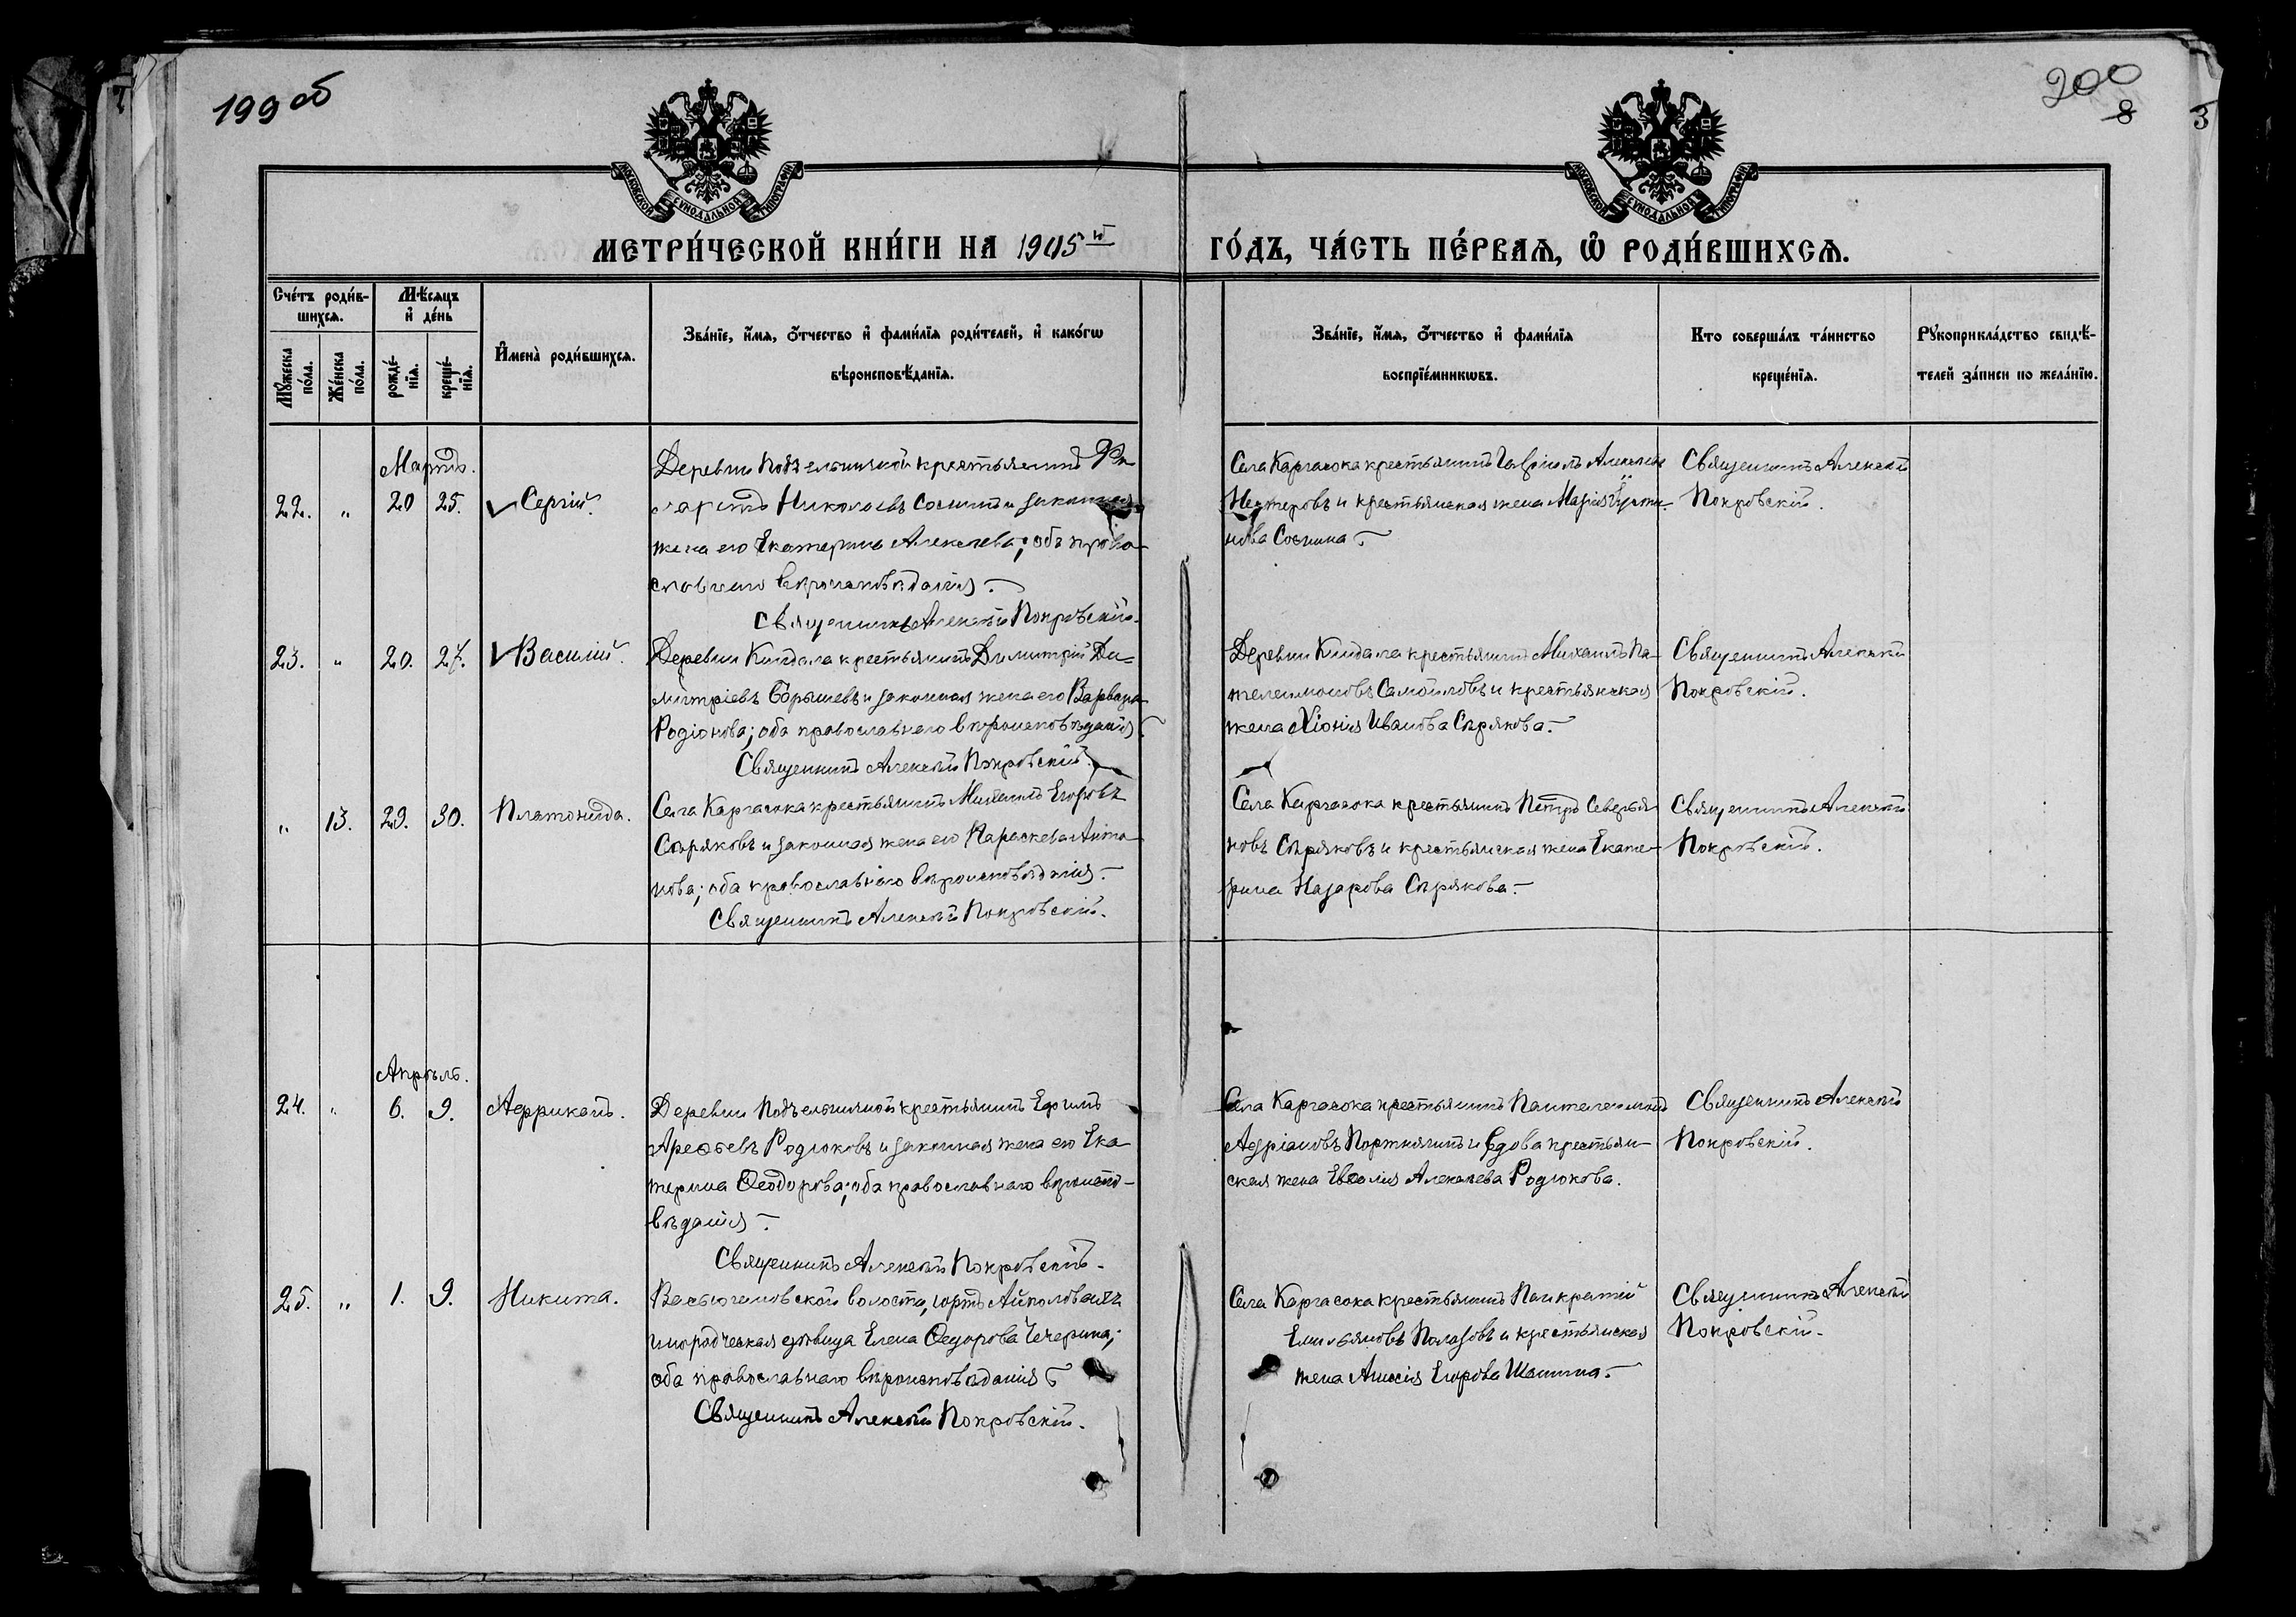 199 об
200
8
3
МОСКОВСКОЙ СѴНОДАЛЬНОЙ ТИПОГРАФІИ
МОСКОВСКОЙ СѴНОДАЛЬНОЙ ТИПОГРАФІИ
МЕТРИ́ЧЕСКОЙ КНИ́ГИ НА 1905 й ГО́ДЪ, ЧА́СТЬ ПЕ́РВАѦ, Ѡ РОДИ́ВШИХСѦ.
Сче́тъ роди́в-
шихсѧ.
Мѣ́сѧцъ
и҆ де́нь
Мꙋ́жеска
по́ла.
Же́нска
по́ла.
рожде́-
нїѧ.
креще́-
нїѧ.
И҆мена̀ роди́вшихсѧ.
Зва́нїе, и҆́мѧ, ѻ҆́тчество и҆ фами́лїѧ роди́телей, и҆ како́гѡ
вѣроисповѣ́данїѧ.
Зва́нїе, и҆́мѧ, ѻ҆́тчество и҆ фами́лїѧ
воспрїе́мникѡвъ.
Кто соверша́лъ та́инство
креще́нїѧ.
Рꙋкоприкла́дство свидѣ́-
телей за́писи по жела́нїю.
Мартъ.
22. „ 20 25. Сергій.
Деревни Подъельничной крестьянинъ
Николаевъ Соснинъ и законная
жена его Екатерина Алексѣева; оба право-
славнаго вѣроисповѣданія.
Священникъ Алексѣй Покровскій.
Села Каргасока крестьянинъ Гавріилъ Алексѣевъ
Нестеровъ и крестьянская жена Марія
Соснина
Священникъ Алексѣй
Покровскій.
23. „ 20. 27. Василій.
Деревни Киндала крестьянинъ Димитрій Ди-
митріевъ Борышевъ и законная жена его Варвара
Родіонова; оба православнаго вѣроисповѣданія.
Священникъ Алексѣй Покровскій.
Деревни Киндала крестьянинъ Михаилъ Па-
телеимоновъ Самойловъ и крестьянская
жена Хіонія Иванова Сѣрякова.
Священникъ Алексѣй
Покровскій.
„ 13. 29. 30. Платонида.
Села Каргасока крестьянинъ Михаилъ Егоровъ
Сѣряковъ и законная жена его Параскева Анто-
нова; оба православнаго вѣроисповѣданія.
Священникъ Алексѣй Покровскій.
Села Каргасока крестьянинъ Петръ Северья-
новъ Сѣряковъ и крестьянская жена Екате-
рина Назарова Сѣрякова.
Священникъ Алексѣй
Покровскій.
Апрѣль.
24. „ 6. 9. Африканъ.
Деревни Подъельничной крестьянинъ Ефимъ
Арефьевъ Родюковъ и законная жена его Ека-
терина Ѳеодорова; оба православнаго вѣроиспо-
вѣданія.
Священникъ Алексѣй Покровскій.
Села Каргасока крестьянинъ Пантелеимонъ
Адріановъ Портнягинъ и вдова крестьян-
ская жена Евѳалія Алексѣева Родюкова.
Священникъ Алексѣй
Покровскій.
25. „ 1. 9. Никита.
Васюгановской волости, юртъ Айполовскихъ
инородческая дѣвица Елена Ѳедорова Чечерина;
оба православнаго вѣроисповѣданія
Священникъ Алексѣй Покровскій.
Села Каргасока крестьянинъ Панкратій
Емельяновъ Палазовъ и крестьянская
жена Анисія Егорова Шанина.
Священникъ Алексѣй
Покровскій.